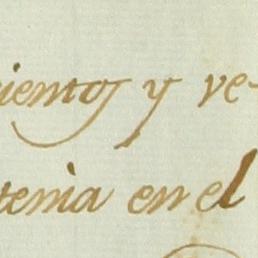 ientos y ve-
tenia en el